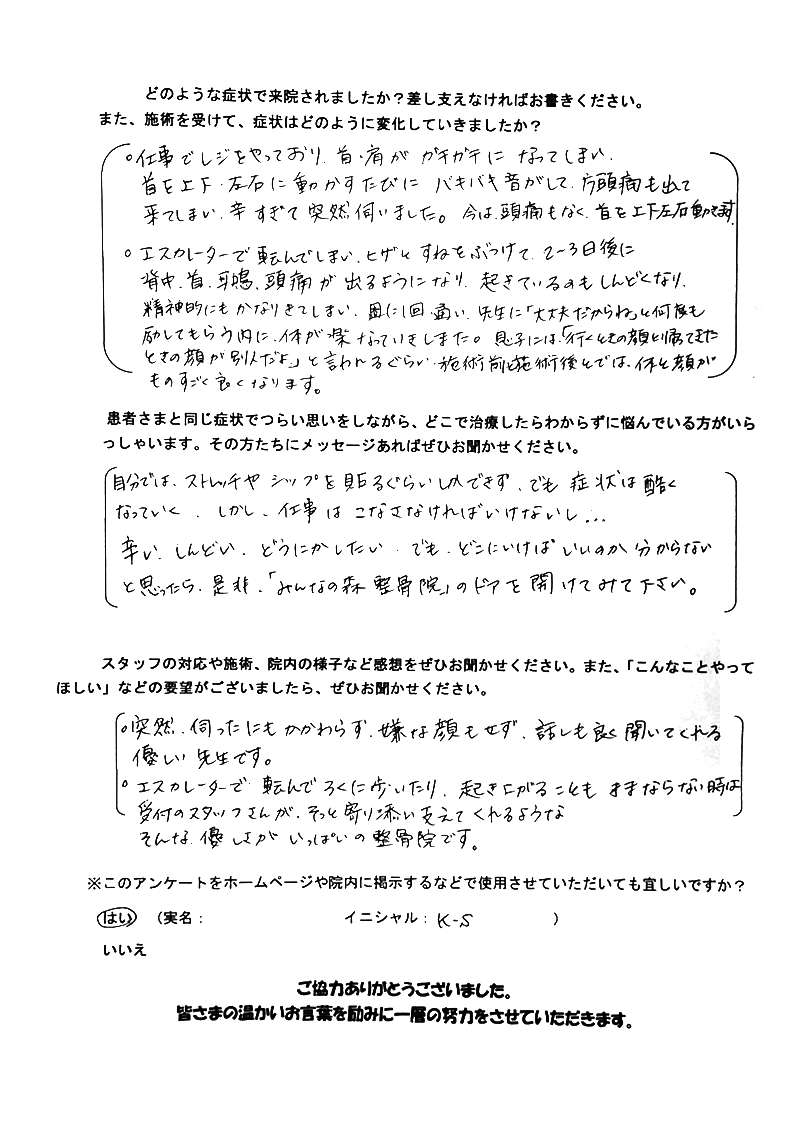 どのような症状で来院されましたか？差し支えなければお書きください。
また、施術を受けて、症状はどのように変化していきましたか？
○仕事でレジをやっており、首・肩が ガチガチに なってしまい、
首を上下・左右に動かすたびに バキバキ音がして、片頭痛も出て
来てしまい、辛すぎて突然伺いました。今は、頭痛もなく、首を上下左右動きます。
○エスカレーターで転んでしまい、ヒザとすねをぶつけて、2〜3日後に
背中、首、耳鳴、頭痛が出るようになり、起きているのもしんどくなり、
精神的にもかなりきてしまい、週に1回通い、先生に「大丈夫だからね」と何度も
励してもらう内に、体が楽なっていきました。息子には、「行くときの顔と帰ってきた
ときの顔が別人だよ」と言われるぐらい、施術前と施術後とでは、体と顔が
ものすごく良くなります。
患者さまと同じ症状でつらい思いをしながら、どこで治療したらわからずに悩んでいる方がいら
っしゃいます。その方たちにメッセージあればぜひお聞かせください。
自分では、ストレッチや シップを貼るぐらいしかできず、でも 症状は酷く
なっていく、しかし、仕事は こなさなければいけないし...
辛い、しんどい、どうにかしたい、でも、どこにいけば いいのか 分からない
と思ったら、是非、「みんなの森 整骨院」のドアを開けてみて下さい。
スタッフの対応や施術、院内の様子など感想をぜひお聞かせください。また、「こんなことやって
ほしい」などの要望がございましたら、ぜひお聞かせください。
○突然、伺ったにもかかわらず、嫌な顔もせず、話しも良く聞いてくれる
優しい先生です。
○エスカレーターで、転んでろくに歩いたり、起き上がることも ままならない時は
受付のスタッフさんが、そっと寄り添い支えてくれるような
そんな、優しさが いっぱいの整骨院です。
※このアンケートをホームページや院内に掲示するなどで使用させていただいても宜しいですか？
はい （実名： イニシャル：K-S ）
いいえ
ご協力ありがとうございました。
皆さまの温かいお言葉を励みに一層の努力をさせていただきます。